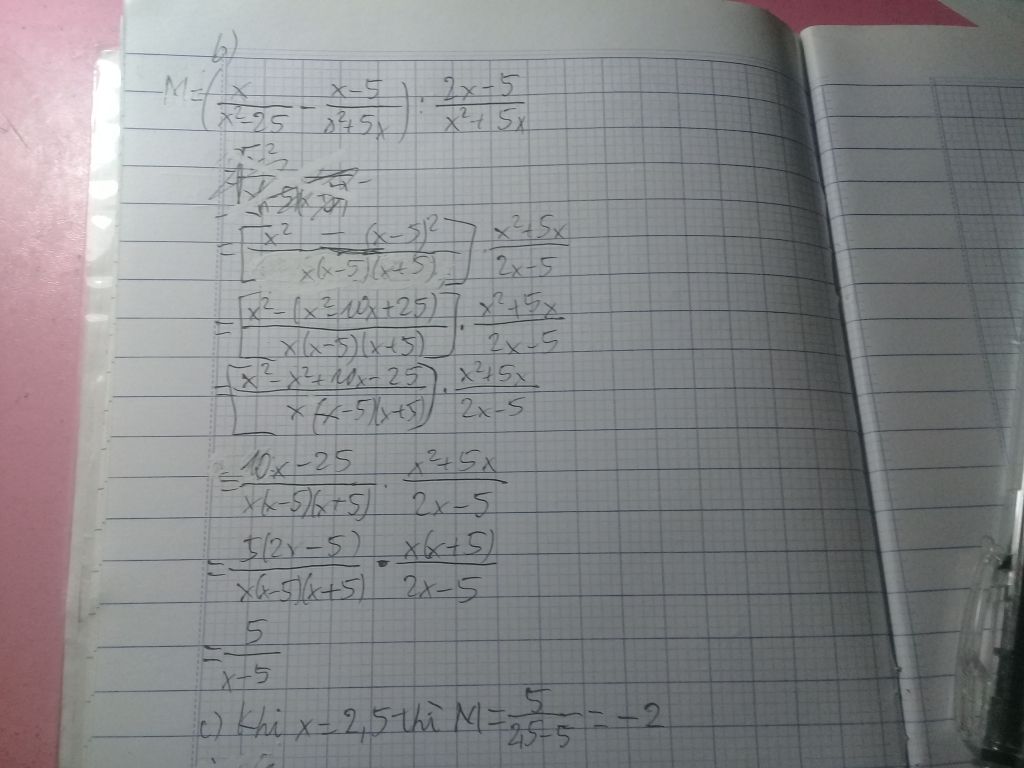 b)
M=(x/(x²-25) - (x-5)/(x²+5x)) : (2x-5)/(x²+5x)
= [(x² - (x-5)²)/(x(x-5)(x+5))] · (x²+5x)/(2x-5)
= [(x²-(x²-10x+25))/(x(x-5)(x+5))] · (x²+5x)/(2x-5)
= [(x²-x²+10x-25)/(x(x-5)(x+5))] · (x²+5x)/(2x-5)
= (10x-25)/(x(x-5)(x+5)) · (x²+5x)/(2x-5)
= 5(2x-5)/(x(x-5)(x+5)) · x(x+5)/(2x-5)
= 5/(x-5)
c) Khi x=2,5 thì M = 5/(2,5-5) = -2